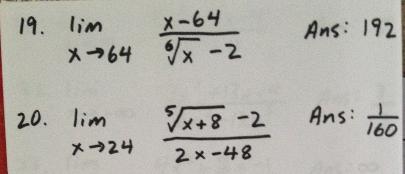 19. lim x→64 (x-64)/(⁶√x -2) Ans: 192
20. lim x→24 (⁵√(x+8) -2)/(2x-48) Ans: 1/160